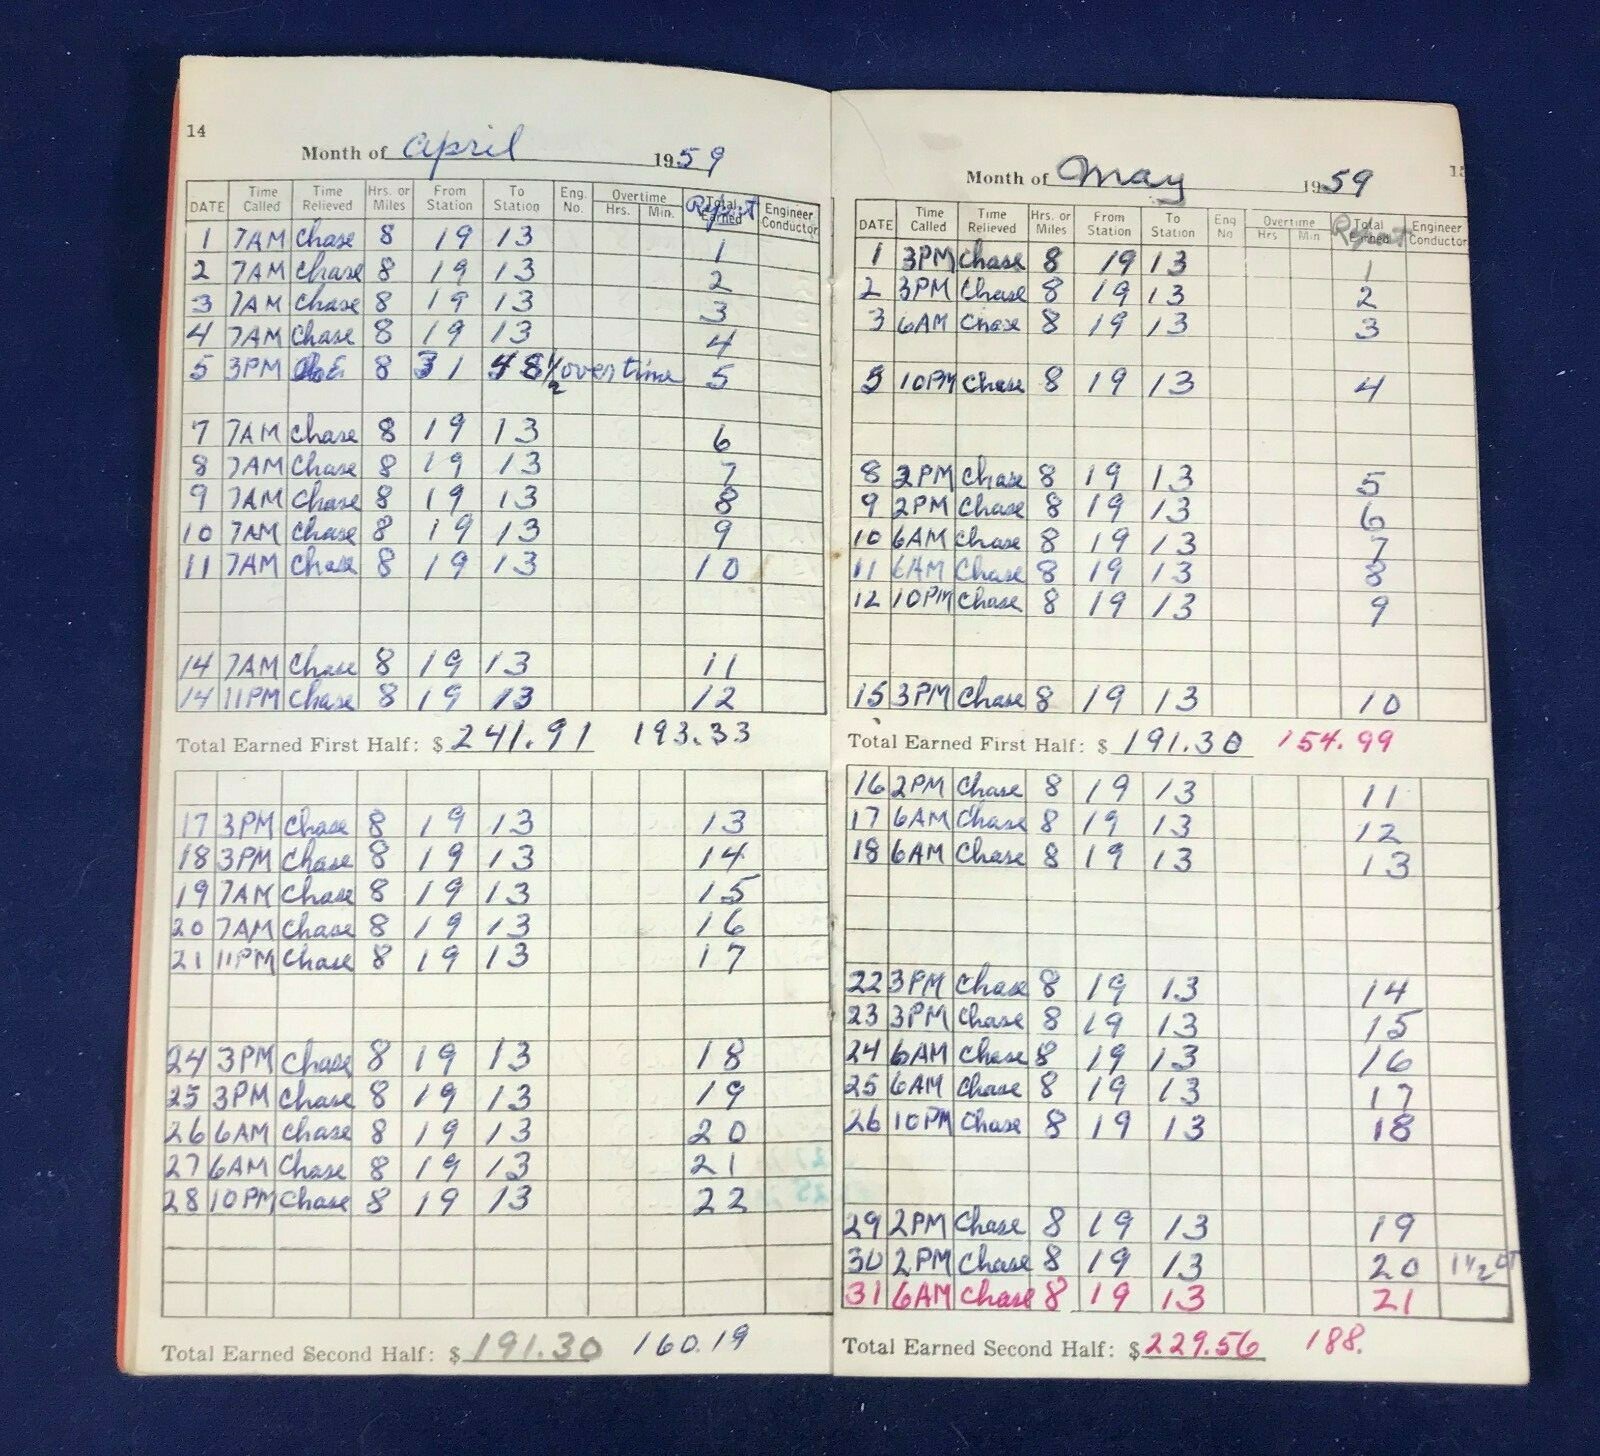 14
Month of April 1959
DATE Time Called Time Relieved Hrs. or Miles From Station To Station Eng. No. Overtime Hrs. Min. Total Earned Report Engineer Conductor
1 7AM Chase 8 19 13 1
2 7AM Chase 8 19 13 2
3 7AM Chase 8 19 13 3
4 7AM Chase 8 19 13 4
5 3PM 8 31 1/2 overtime 5
7 7AM Chase 8 19 13 6
8 7AM Chase 8 19 13 7
9 7AM Chase 8 19 13 8
10 7AM Chase 8 19 13 9
11 7AM Chase 8 19 13 10
14 7AM Chase 8 19 13 11
14 11PM Chase 8 19 13 12
Total Earned First Half: $ 241.91 193.33
17 3PM Chase 8 19 13 13
18 3PM Chase 8 19 13 14
19 7AM Chase 8 19 13 15
20 7AM Chase 8 19 13 16
21 11PM Chase 8 19 13 17
24 3PM Chase 8 19 13 18
25 3PM Chase 8 19 13 19
26 6AM Chase 8 19 13 20
27 6AM Chase 8 19 13 21
28 10PM Chase 8 19 13 22
Total Earned Second Half: $ 191.30 160.19
15
Month of May 1959
DATE Time Called Time Relieved Hrs. or Miles From Station To Station Eng No Overtime Hrs Min Total Earned Report Engineer Conductor
1 3PM Chase 8 19 13 1
2 3PM Chase 8 19 13 2
3 6AM Chase 8 19 13 3
5 10PM Chase 8 19 13 4
8 2PM Chase 8 19 13 5
9 2PM Chase 8 19 13 6
10 6AM Chase 8 19 13 7
11 6AM Chase 8 19 13 8
12 10PM Chase 8 19 13 9
15 3PM Chase 8 19 13 10
Total Earned First Half: $ 191.30 154.99
16 2PM Chase 8 19 13 11
17 6AM Chase 8 19 13 12
18 6AM Chase 8 19 13 13
22 3PM Chase 8 19 13 14
23 3PM Chase 8 19 13 15
24 6AM Chase 8 19 13 16
25 6AM Chase 8 19 13 17
26 10PM Chase 8 19 13 18
29 2PM Chase 8 19 13 19
30 2PM Chase 8 19 13 20 1 1/2 OT
31 6AM Chase 8 19 13 21
Total Earned Second Half: $ 229.56 188.